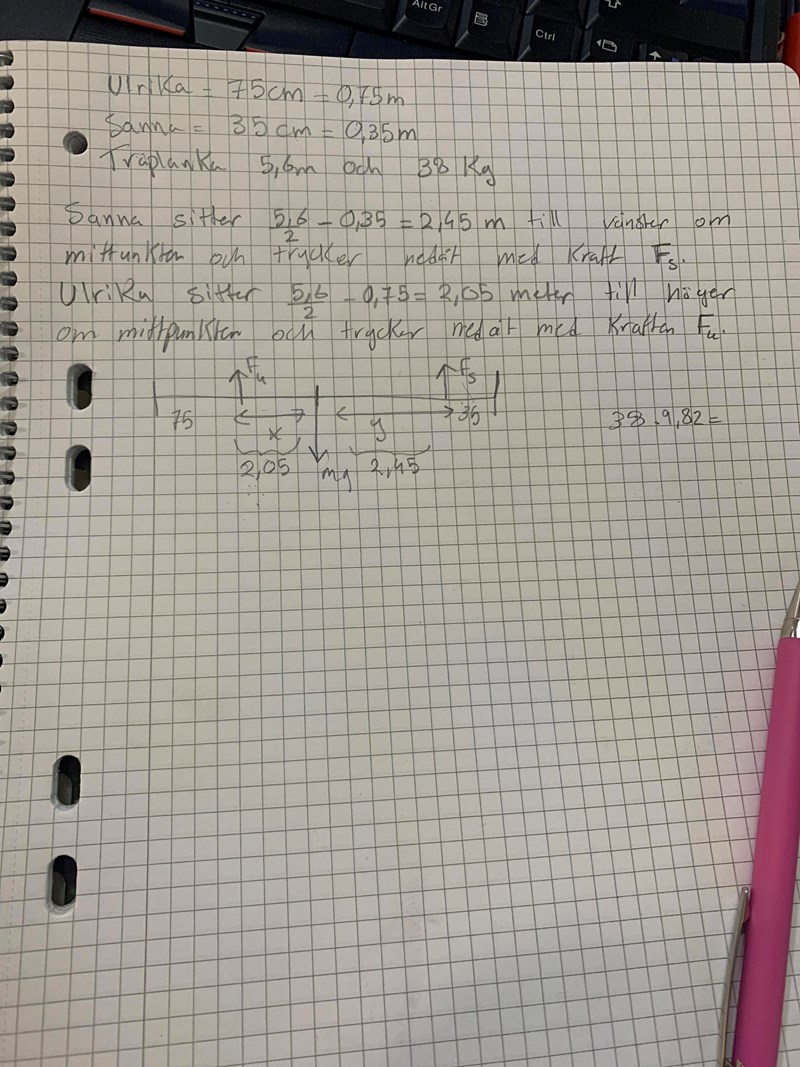 AltGr
Ctrl
Ulrika = 75cm = 0,75m
Sanna = 35 cm = 0,35m
Träplanka 5,6m och 38 Kg
Sanna sitter 5,6/2 - 0,35 = 2,45 m till vänster om
mittunkten och trycker nedåt med Kraft Fs.
Ulrika sitter 5,6/2 - 0,75 = 2,05 meter till höger
om mittpunkten och trycker nedåt med Kraften Fu.
Fu Fs
75 x y 35 38 . 9,82 =
2,05 mg 2,45